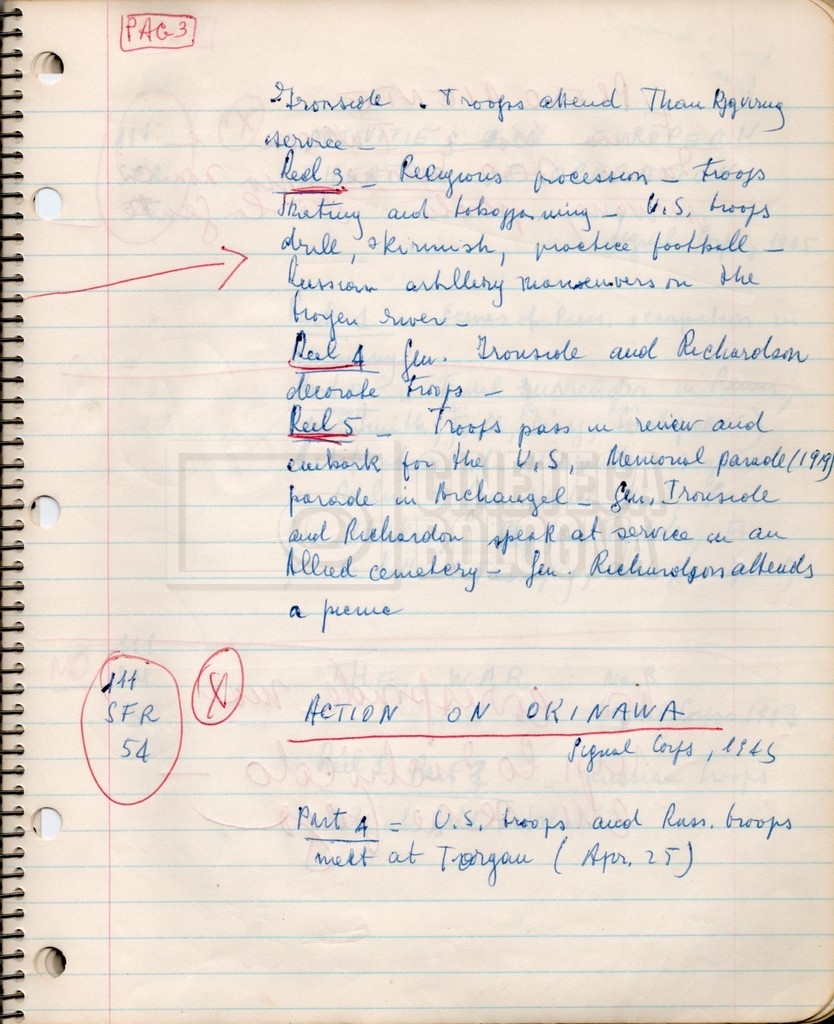 PAG 3
Ironside. Troops attend Than Kgiving
service -
Reel 3 - Religious procession - Troops
skating and tobogganing - U.S. troops
drill, skirmish, practice football -
Russian artillery maneuvers on the
frozen river -
Reel 4 Gen. Ironside and Richardson
decorate troops -
Reel 5 - Troops pass in review and
embark for the U.S. Memorial parade (1919)
parade in Archangel - Gen. Ironside
and Richardon speak at service in an
Allied cemetery - Gen. Richardson attends
a picnic
111
SFR
54
X
ACTION ON OKINAWA
Signal Corps, 1945
Part 4 = U.S. troops and Russ. troops
meet at Torgau (Apr. 25)
CINETECA
BOLOGNA